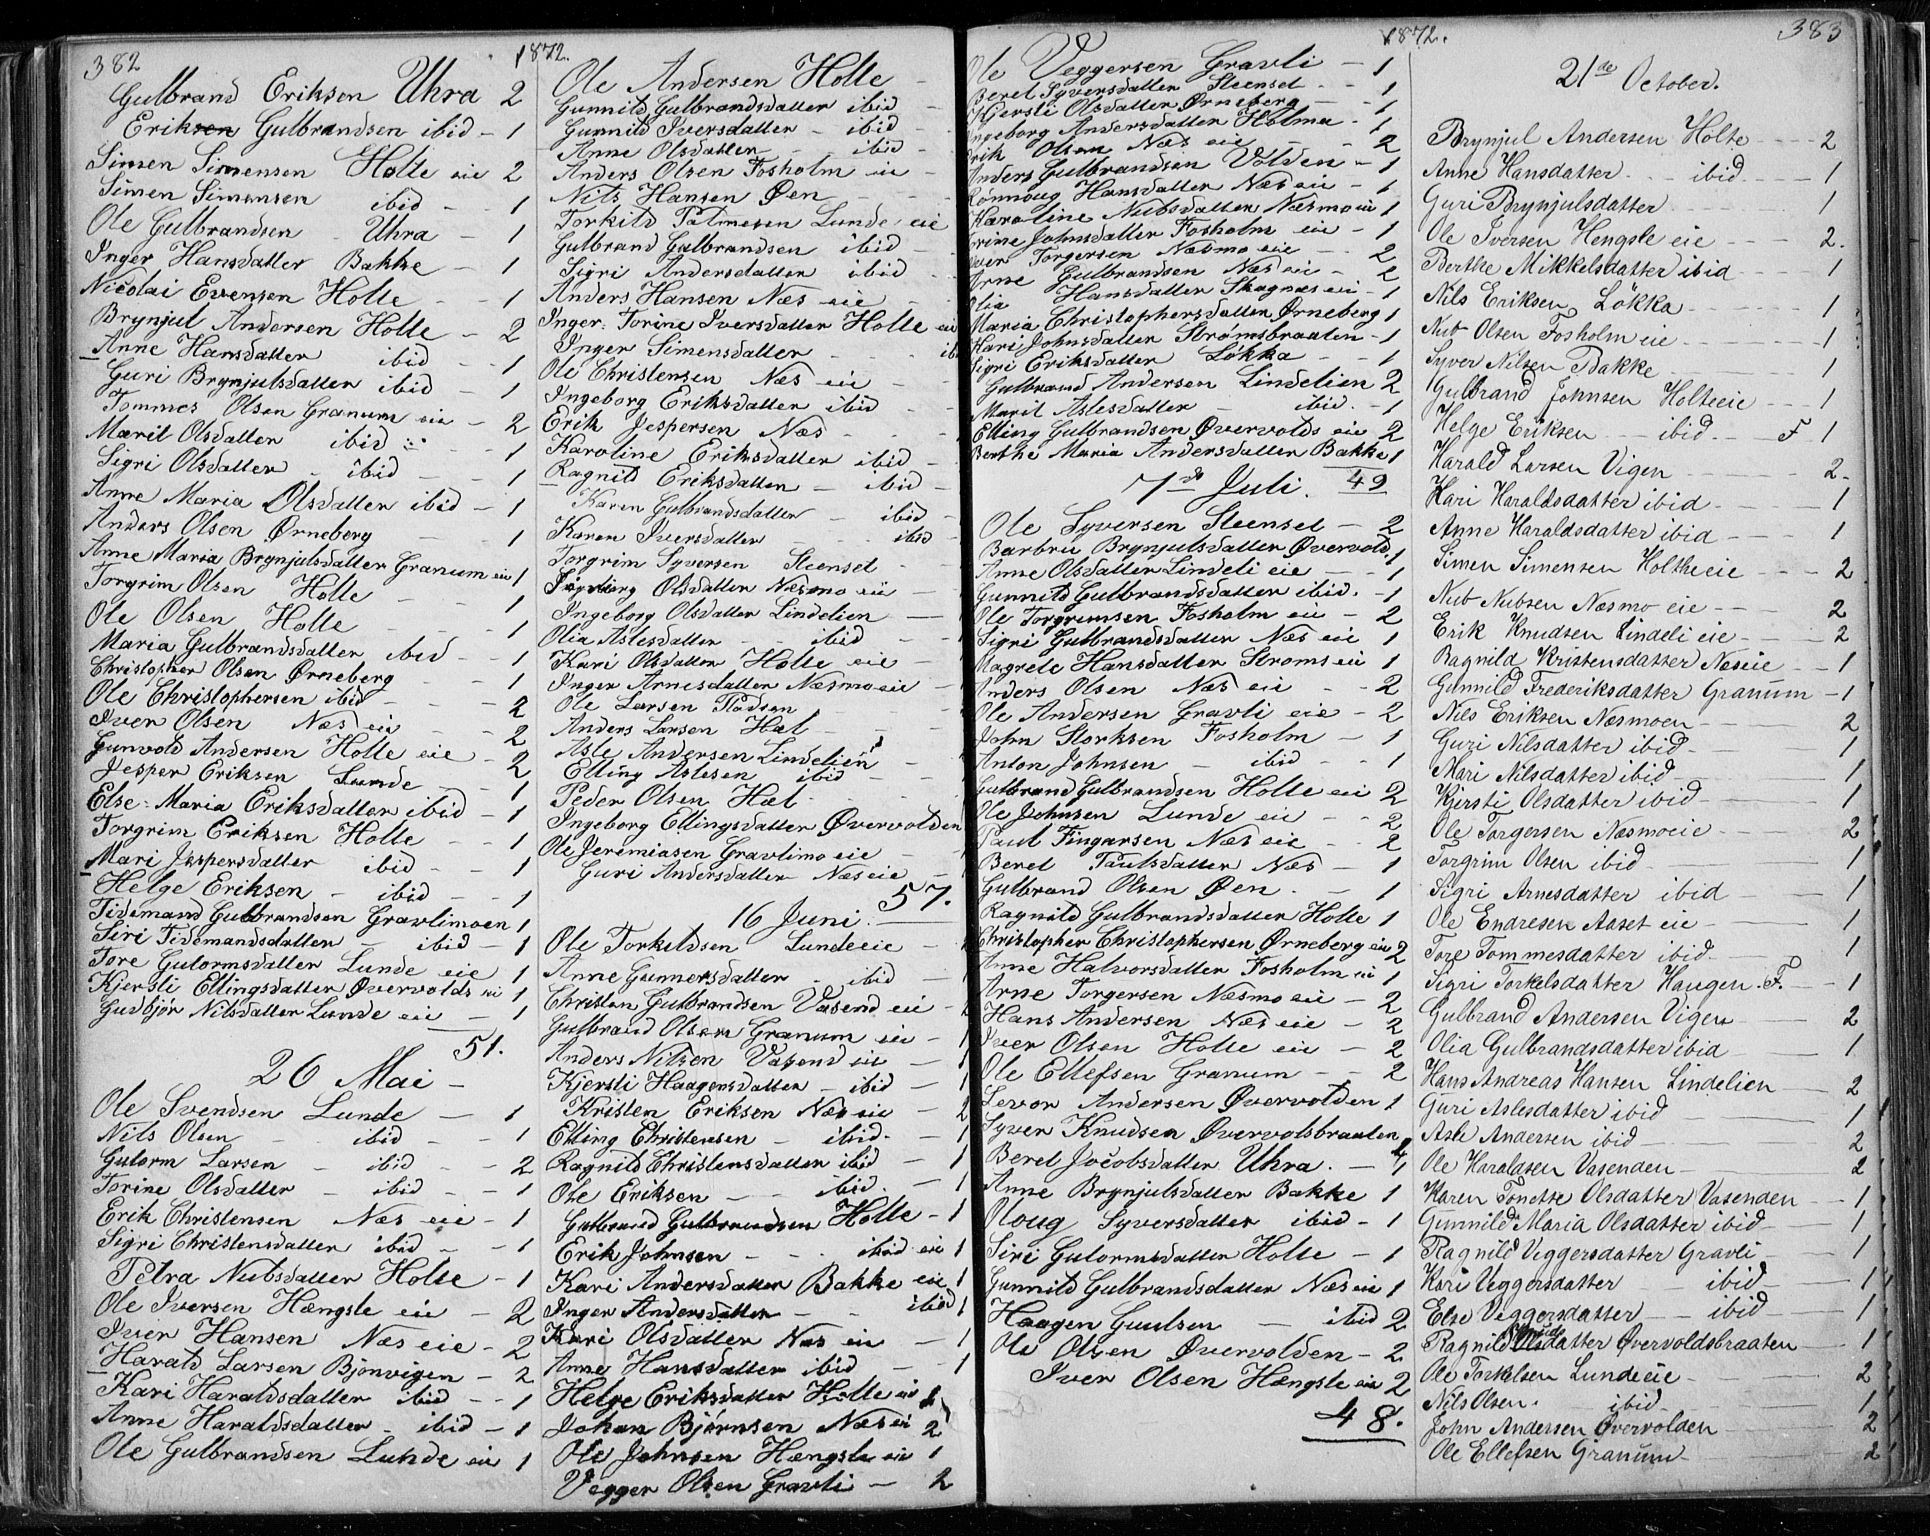 382
1872.
Gulbrand Eriksen Uhra 2
Eriksen Gulbrandsen ibid - 1
Simen Simensen Holte eie 2
Simen Simensen ibid - 1
Ole Gulbrandsen Uhra - 1
Inger Hansdatter Bakke - 1
Nicolai Evensen Holte - 1
Brynjul Andersen Holte - 2
Anne Hansdatter ibid - 1
Guri Brynjulsdatter ibid - 1
Tommes Olsen Granum eie - 2
Marit Olsdatter ibid - 1
Sigri Olsdatter ibid - 1
Anne Maria Olsdatter ibid - 1
Anders Olsen Ørneberg - 1
Anne Maria Brynjulsdatter Granum eie 1
Torgrim Olsen Holte - 1
Ole Olsen Holte - 1
Maria Gulbrandsdatter ibid - 1
Christopher Olsen Ørneberg - 1
Ole Christophersen ibid - 2
Iver Olsen Næs eie - 2
Gunvold Andersen Holte eie - 2
Jesper Eriksen Lunde - 1
Else Maria Eriksdatter ibid - 1
Torgrim Eriksen Holte - 1
Mari Jespersdatter ibid - 1
Helge Eriksen - ibid - 1
Tidemand Gulbrandsen Gravlimoen 1
Siri Tidemandsdatter - ibid - 1
Tore Gutormsdatter Lunde eie 1
Kjersti Ellingsdatter Øvervolds eie 1
Gudbjør Nilsdatter Lunde eie - 1
51.
26 Mai -
Ole Svendsen Lunde - 1
Nils Olsen - ibid - 1
Gutorm Larsen - ibid - 2
Torine Olsdatter - ibid - 1
Erik Christensen Næs eie - 1
Sigri Christensdatter ibid - 1
Petra Nubsdatter Holte - 1
Ole Iversen Hængsle eie - 2
Iver Hansen Næs eie - 2
Harald Larsen Bjönvigen - 2
Kari Haraldsdatter ibid - 1
Anne Haraldsdatter - ibid - 1
Ole Gulbrandsen Lunde eie 1
Ole Andersen Holte -
Gunnild Gulbrandsdatter ibid -
Gunnild Iversdatter - ibid -
Anne Olsdatter - ibid -
Anders Olsen Fosholm eie -
Nils Hansen Øen -
Torkild Palmesen Lunde eie
Gulbrand Gulbrandsen ibid -
Sigri Andersdatter ibid -
Anders Hansen Næs eie -
Inger Torine Iversdatter Holte eie
Inger Simensdatter - ibid
Ole Christensen Næs eie
Ingeborg Eriksdatter ibid -
Erik Jespersen Næs -
Karoline Eriksdatter ibid -
Ragnild Eriksdatter - ibid -
Karen Gulbrandsdatter - ibid -
Karen Iversdatter - ibid -
Torgrim Syversen Steenset
Ingeborg Olsdatter Næsmo eie -
Ingeborg Olsdatter Lindelien -
Olia Aslesdatter - ibid -
Kari Olsdatter Holte eie -
Inger Arnesdatter Næsmo eie -
Ole Larsen Flødsen -
Anders Larsen Hæl -
Asle Andersen Lindelien -
Elling Aslesen ibid -
Peder Olsen Hæl -
Ingeborg Ellingsdatter Øvervolden
Ole Jeremiasen Gravlimo eie -
Guri Andersdatter Næs eie -
57.
16 Juni.
Ole Torkeldsen Lunde eie -
Anne Gunnersdatter - ibid - 1
Christen Gulbrandsen Vasend eie -
Gulbrand Olsen Granum eie - 1
Anders Nilsen Vasend eie - 1
Kjersti Haagensdatter - ibid - 1
Kristen Eriksen Næs eie - 2
Elling Christensen - ibid - 1
Ragnild Christensdatter ibid - 1
Ole Eriksen - ibid. - 1
Gulbrand Gulbrandsen Holte - 1
Erik Johnsen - ibid eie 1
Kari Andersdatter Bakke eie 1
Inger Andersdatter - ibid 1
Kari Olsdatter Næs eie - 1
Anne Hansdatter ibid - 1
Helge Eriksdatter Holte eie 1
Johan Bjørnsen Næs eie 2
Ole Johnsen Hængsle eie 1
Vegger Olsen Gravli - 2
1872.
383
Ole Veggersen Gravli - 1
Beret Syversdatter Steenset - 1
Kjersti Olsdatter Ørneberg - 1
Ingeborg Andersdatter Holma - 1
Erik Olsen Næs eie - 2
Anders Gulbrandsen Volden - 1
Rønnoug Hansdatter Næs eie - 1
Karoline Nubsdatter Næsmo eie 1
Trine Johnsdatter Fosholm eie - 1
Iver Torgersen Næsmo eie - 2
Arne Gulbrandsen Næs eie - 2
Olia Hansdatter Skagnæs eie - 1
Maria Christophersdatter Ørneberg 1
Kari Johnsdatter Strømsbraaten - 1
Sigri Eriksdatter Løkka - 1
Gulbrand Andersen Lindelien 2
Marit Aslesdatter - ibid. - 1
Elling Gulbrandsen Øvervolds eie 2
Berthe Maria Andersdatter Bakke 1
49
7de Juli.
Ole Syversen Steenset - 2
Barbru Brynjulsdatter Øvervold 1
Anne Olsdatter Lindeli eie - 1
Gunnild Gulbrandsdatter ibid. - 1
Ole Torgrimsen Fosholm eie - 2
Sigri Gulbrandsdatter Næs eie 1
Magrete Hansdatter Stroms eie 1
Anders Olsen Næs eie - 2
Ole Andersen Gravli eie - 2
John Storksen Fosholm - 1
Anton Johnsen - ibid - 1
Gulbrand Gulbrandsen Holte eie 2
Ole Johnsen Lunde eie - 2
Paul Fingarsen Næs eie - 2
Beret Paulsdatter Næs - 1
Gulbrand Olsen Øen. - 1
Ragnild Gulbrandsdatter Holte 1
Christopher Christophersen Ørneberg eie 2
Anne Halvorsdatter Fosholm eie 1
Arne Torgersen Næsmo eie - 2
Hans Andersen Næs eie - 2
Iver Olsen Holte eie - 2
Ole Ellefsen Granum - 2
Sevor Andersen Øvervolden 1
Syver Knudsen Øvervolsbraaten 2
Beret Jocobsdatter Uhra. - 1
Anne Brynjulsdatter Bakke 1
Oloug Syversdatter ibid - 1
Siri Gutormsdatter Holte - 1
Gunnild Gulbrandsdatter Næs eie 1
Haagen Guulsen - ibid 2
Ole Olsen Øvervolden - 2
Iver Olsen Hængsle eie 2
48.
21de October.
Brynjul Andersen Holte - 2
Anne Hansdatter - ibid - 1
Guri Brynjulsdatter - 1
Ole Iversen Hengsle eie - 2.
Berthe Mikkelsdatter ibid - 1
Nils Eriksen Lökka - 1
Nub Olsen Fosholm eie - 1
Syver Nilsen Bakke - 1
Gulbrand Johnsen Holte eie - 1
Helge Eriksen - ibid. - F 1
Harald Larsen Vigen - 2.
Kari Haraldsdatter ibid - 1
Anne Haraldsdatter ibid - 1
Simen Simensen Holthe eie - 2
Nub Nubsen Næsmo eie - 2
Erik Knudsen Lindeli eie - 2
Ragnild Kristensdatter Næs eie - 1
Gunnild Frederiksdatter Granum - 1
Nils Eriksen Næsmoen - 2
Guri Nilsdatter ibid - 1
Mari Nilsdatter ibid - 1
Kjersti Olsdatter ibid - 1
Ole Torgersen Næsmoeie - 2
Torgrim Olsen ibid - 1
Sigri Arnesdatter ibid - 1
Ole Endresen Aaset eie - 1
Tore Tommesdatter ibid. - 1
Sigri Torkelsdatter Haugen. F. - 1
Gulbrand Andersen Vigen - 2
Olia Gulbrandsdatter ibid - 1
Hans Andreas Hansen Lindelien - 2
Guri Aslesdatter ibid - 1
Asle Andersen ibid - 2
Ole Haraldsen Vasenden - 2
Karen Tonette Olsdatter Vasenden - 1
Gunnild Maria Olsdatter ibid - 1
Ragnild Veggersdatter Gravli - 1
Kari Veggersdatter - ibid - 1
Else Veggersdatter - ibid - 1
Ragnild Olsdatter Øvervoldsbraaten - 1
Ole Torkelsen Lunde eie - 2
Nils Olsen. ibid - 1
John Andersen Øvervolden - 2
Ole Ellefsen Granum - 2